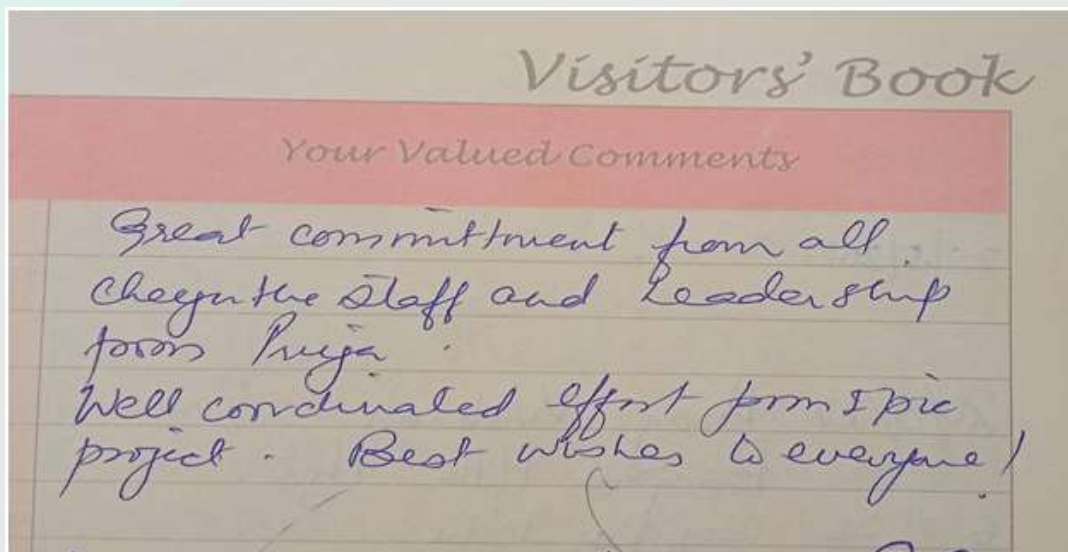 Visitors' Book
Your Valued Comments
Great committment from all
staff and Leadership
from
Well coordinated effort from
project. Best wishes to everyone!